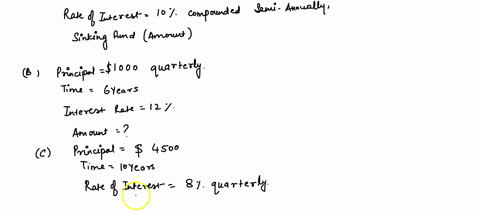 Rate of Interest = 10 %. compounded Semi-Annually,
Sinking Fund (Amount)
(B) Principal = $1000 quarterly.
Time = 6 Years
Interest Rate = 12 %.
Amount = ?
(C) Principal = $ 4500
Time = 10 Years
Rate of Interest = 8 %. quarterly.